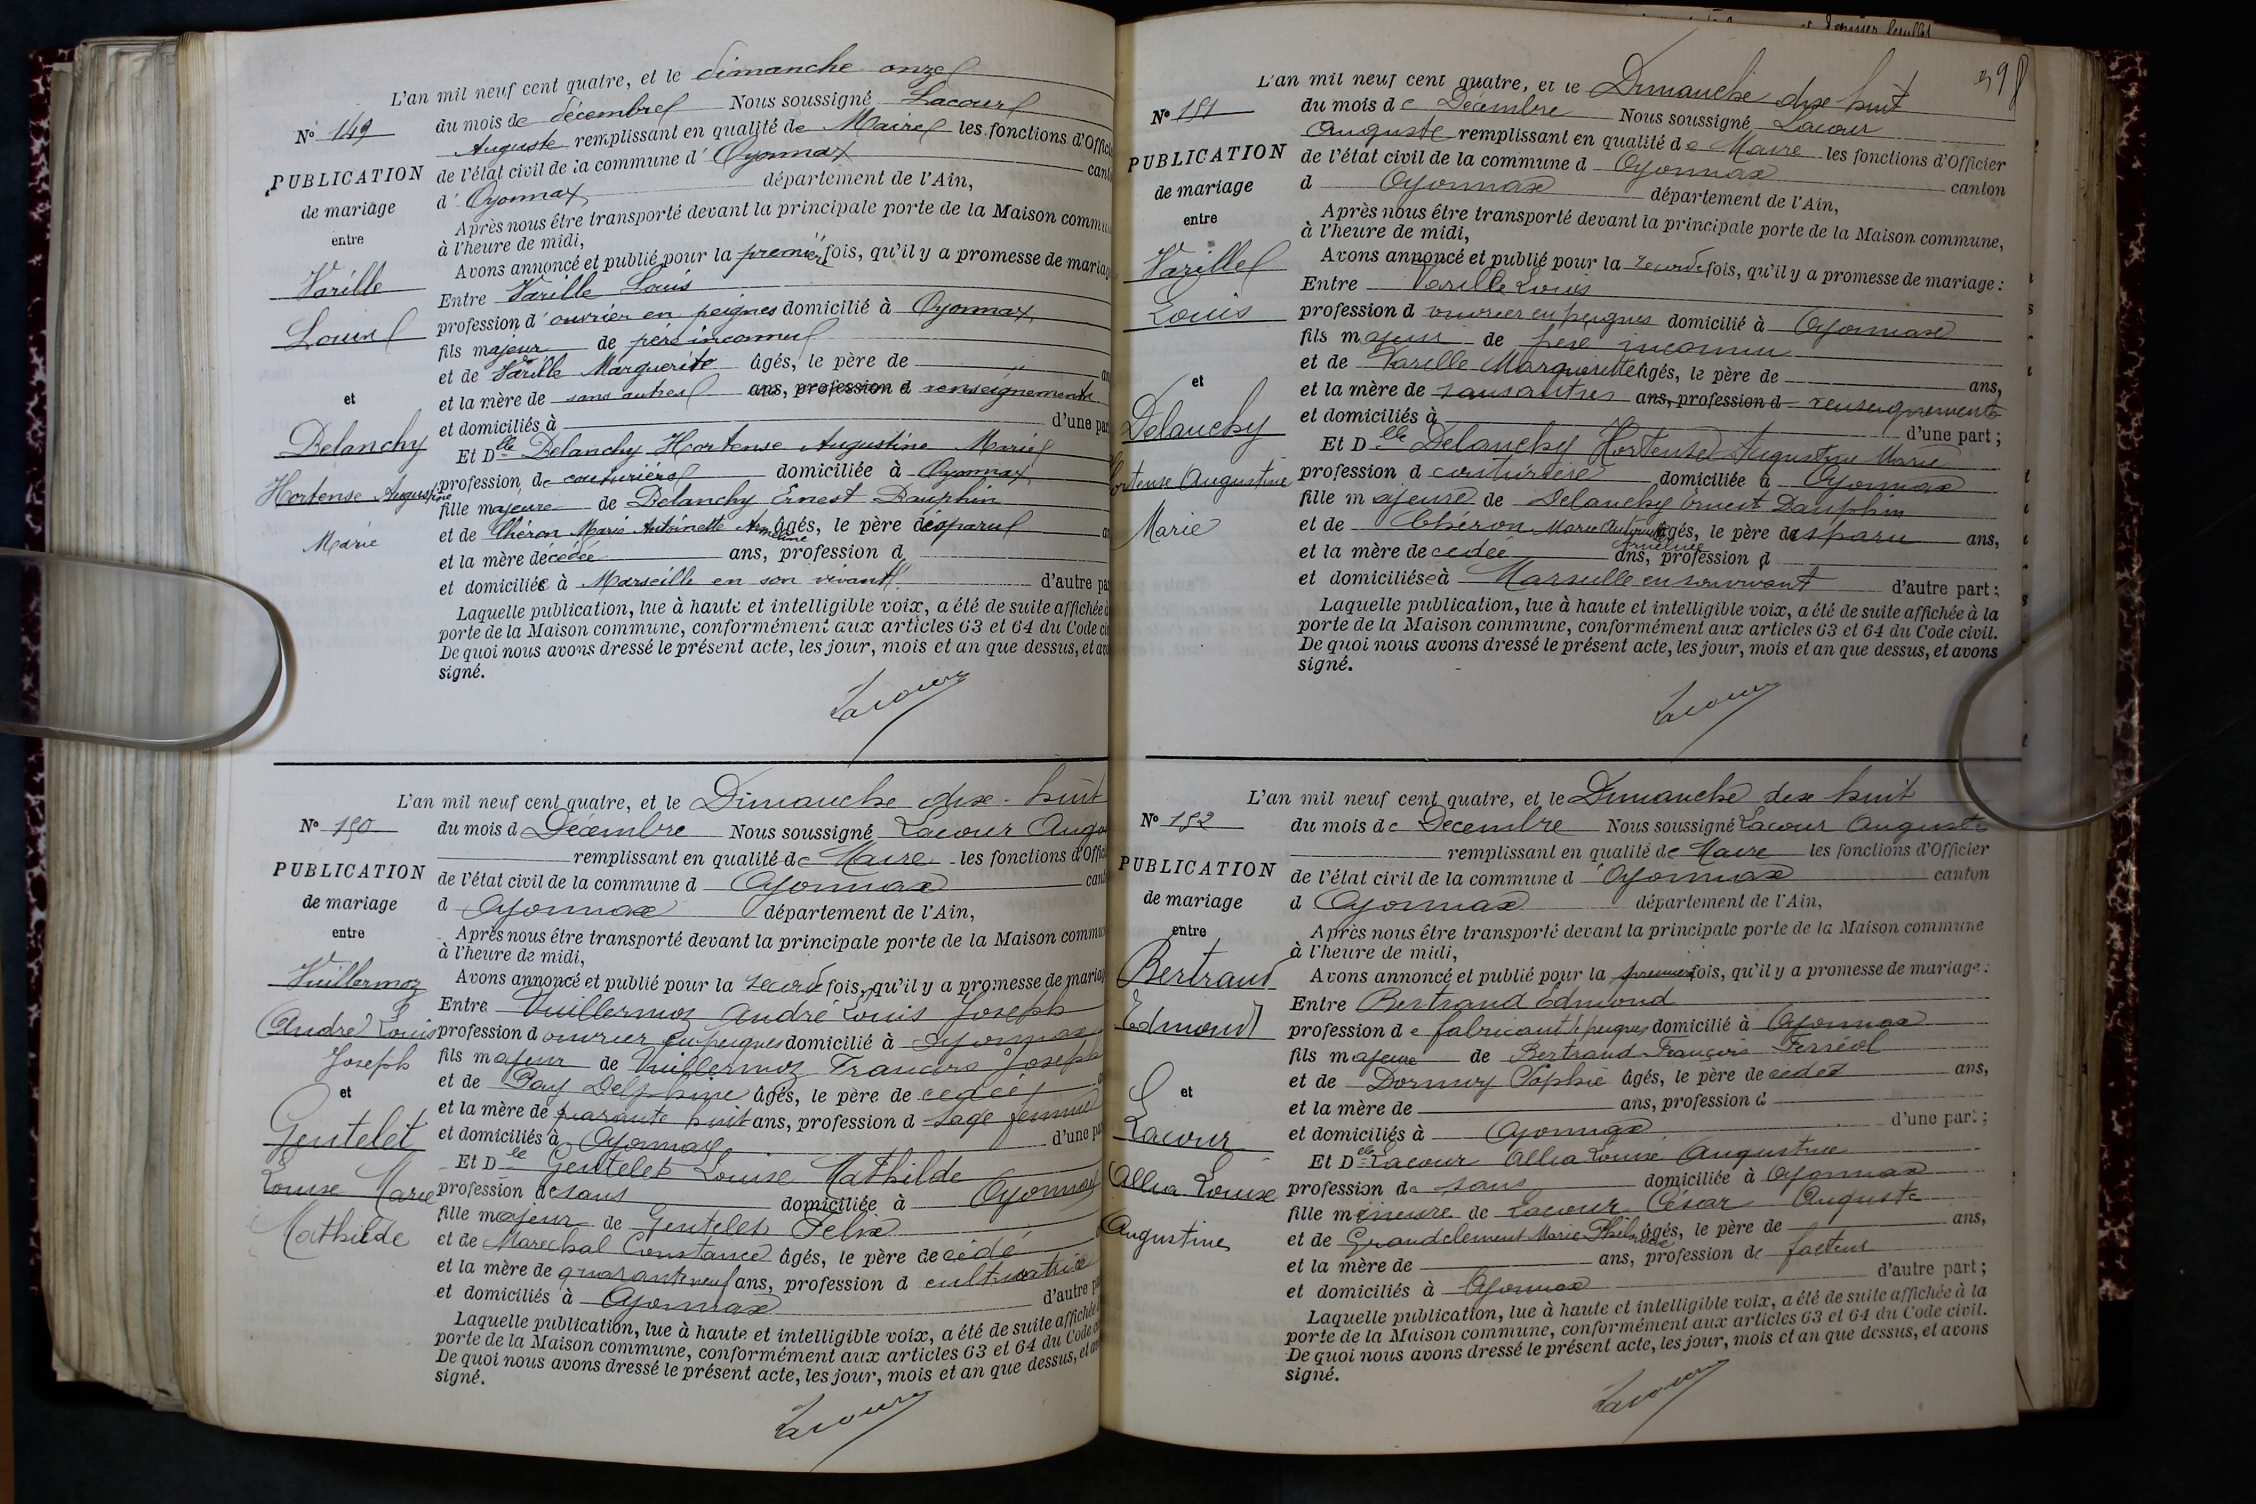 L'an mil neuf cent quatre, et le dimanche onze
N° 149
du mois de décembre Nous soussigné Lacour
Auguste remplissant en qualité de Maire les fonctions d'Offic
PUBLICATION
de l'état civil de la commune d' Oyonnax cant
de mariage
d' Oyonnax département de l'Ain,
entre
Après nous être transporté devant la principale porte de la Maison commu
à l'heure de midi,
Avons annoncé et publié pour la première fois, qu'il y a promesse de maria
Varille
Entre Varille Louis
Louis
profession d' ouvrier en peignes domicilié à Oyonnax
fils majeur de père inconnu
et de Varille Marguerite âgés, le père de " an
et
et la mère de sans autres ans, profession d renseignements
et domiciliés à d'une par
Delanchy
Et Dlle Delanchy Hortense Augustine Marie
Hortense Augustine
profession de couturière domiciliée à Oyonnax
fille majeure de Delanchy Ernest Dauphin
Marie
et de Chéron Marie Antoinette Arméline âgés, le père disparu an
et la mère décédée ans, profession d
et domiciliée à Marseille en son vivant d'autre par
Laquelle publication, lue à haute et intelligible voix, a été de suite affichée à
porte de la Maison commune, conformément aux articles 63 et 64 du Code ci
De quoi nous avons dressé le présent acte, les jour, mois et an que dessus, et avo
signé.
Lacour
L'an mil neuf cent quatre, et le Dimanche dix-huit
N° 150
du mois d Décembre Nous soussigné Lacour Augu
remplissant en qualité de Maire les fonctions d'Offic
PUBLICATION
de l'état civil de la commune d Oyonnax cant
de mariage
d Oyonnax département de l'Ain,
entre
Après nous être transporté devant la principale porte de la Maison commun
à l'heure de midi,
Vuillermoz
Avons annoncé et publié pour la seconde fois, qu'il y a promesse de maria
Entre Vuillermoz André Louis Joseph
André Louis
profession d ouvrier en peignes domicilié à Oyonnax
Joseph
fils majeur de Vuillermoz Francois Joseph
et
et de Pay Delphine âgés, le père de cédé
et la mère de quarante huit ans, profession d sage femme
Gentelet
et domiciliés à Oyonnax d'une pa
Et Dlle Gentelet Louise Mathilde
Louise Marie
profession de sans domiciliée à Oyonnax
fille majeur de Gentelet Felix
Mathilde
et de Marechal Constance âgés, le père de cédé
et la mère de quarante neuf ans, profession d cultivatrice
et domiciliés à Oyonnax d'autre pa
Laquelle publication, lue à haute et intelligible voix, a été de suite affichée
porte de la Maison commune, conformément aux articles 63 et 64 du Code c
De quoi nous avons dressé le présent acte, les jour, mois et an que dessus, et av
signé.
Lacour
398
L'an mil neuf cent quatre, et le Dimanche dix huit
N° 151
du mois de Décembre Nous soussigné Lacour
Auguste remplissant en qualité de Maire les fonctions d'Officier
PUBLICATION
de l'état civil de la commune d Oyonnax canton
de mariage
d Oyonnax département de l'Ain,
entre
Après nous être transporté devant la principale porte de la Maison commune,
à l'heure de midi,
Avons annoncé et publié pour la seconde fois, qu'il y a promesse de mariage :
Varille
Entre Varille Louis
Louis
profession d ouvrier en peignes domicilié à Oyonnax
fils majeur de père inconnu
et de Varille Marguerite âgés, le père de ans,
et
et la mère de sans autres ans, profession d renseignements
et domiciliés à d'une part ;
Delanchy
Et Dlle Delanchy Hortense Augustine Marie
Hortense Augustine
profession d couturière domiciliée à Oyonnax
fille majeure de Delanchy Ernest Dauphin
Marie
et de Chéron Marie Antoinette Arméline âgés, le père disparu ans,
et la mère de cedée ans, profession d
et domiciliésà Marseille en son vivant d'autre part ;
Laquelle publication, lue à haute et intelligible voix, a été de suite affichée à la
porte de la Maison commune, conformément aux articles 63 et 64 du Code civil.
De quoi nous avons dressé le présent acte, les jour, mois et an que dessus, et avons
signé.
Lacour
L'an mil neuf cent quatre, et le Dimanche dix huit
N° 152
du mois de Decembre Nous soussigné Lacour Auguste
remplissant en qualité de Maire les fonctions d'Officier
PUBLICATION
de l'état civil de la commune d Oyonnax canton
de mariage
d Oyonnax département de l'Ain,
entre
Après nous être transporté devant la principale porte de la Maison commune
à l'heure de midi,
Bertrand
Avons annoncé et publié pour la premiere fois, qu'il y a promesse de mariage :
Entre Bertrand Edmond
Edmond
profession de fabricant de peignes domicilié à Oyonnax
fils majeur de Bertrand François Ferréol
et
et de Dormoy Sophie âgés, le père de cédés ans,
et la mère de ans, profession d
Lacour
et domiciliés à Oyonnax d'une part ;
Et Dlle Lacour Allia Louise Augustine
Allia Louise
profession de sans domiciliée à Oyonnax
fille mineure de Lacour César Auguste
Augustine
et de Grandclement Marie Philomène âgés, le père de ans,
et la mère de ans, profession de facteur
et domiciliés à Oyonnax d'autre part ;
Laquelle publication, lue à haute et intelligible voix, a été de suite affichée à la
porte de la Maison commune, conformément aux articles 63 et 64 du Code civil.
De quoi nous avons dressé le présent acte, les jour, mois et an que dessus, et avons
signé.
Lacour